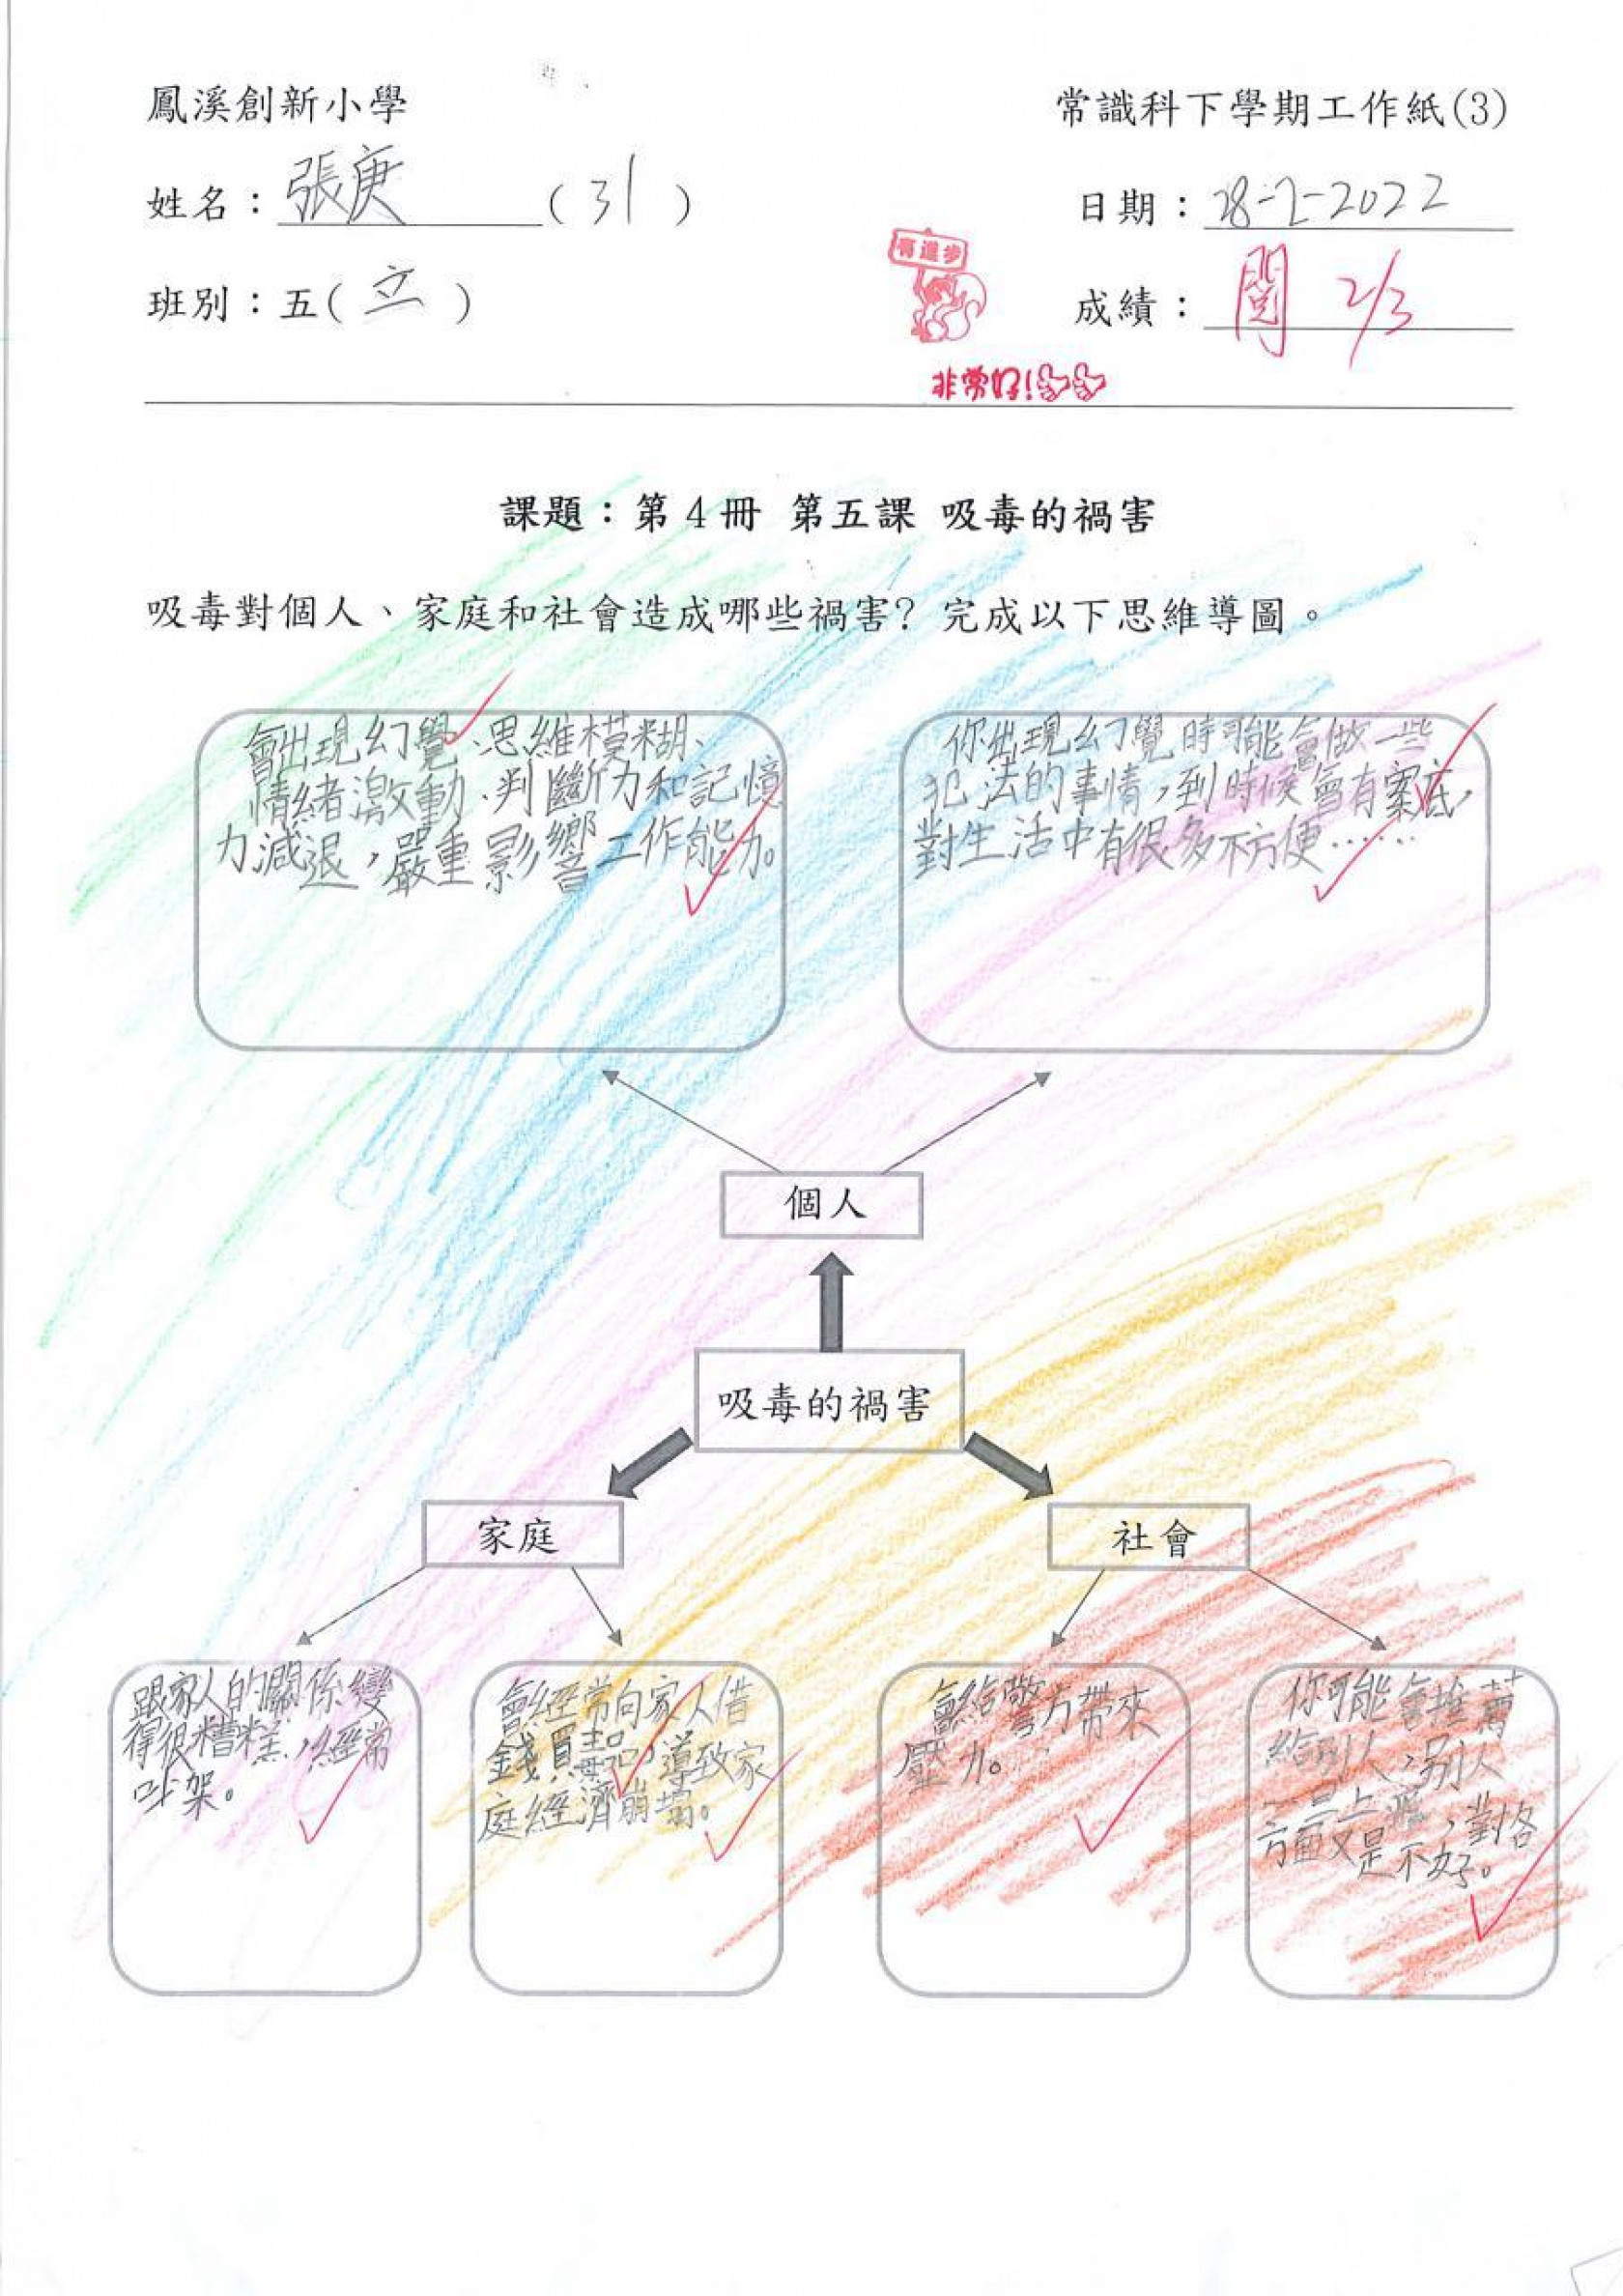 鳳溪創新小學
常識科下學期工作紙(3)
姓名：張庚 (31)
日期：28-2-2022
有進步
班別：五(立)
成績：閱 2/3
非常好!
課題：第4冊 第五課 吸毒的禍害
吸毒對個人、家庭和社會造成哪些禍害? 完成以下思維導圖。
會出現幻覺、思維模糊、
情緒激動、判斷力和記憶
力減退，嚴重影響工作能力。
你出現幻覺時可能會做一些
犯法的事情，到時候會有案底，
對生活中有很多不方便……
個人
吸毒的禍害
家庭
社會
跟家人的關係變
得很糟糕，經常
吵架。
會經常向家人借
錢買毒品，導致家
庭經濟崩塌。
會給警方帶來
壓力。
你可能會推薦
給別人，別人
一旦上癮，對各
方面又是不好。